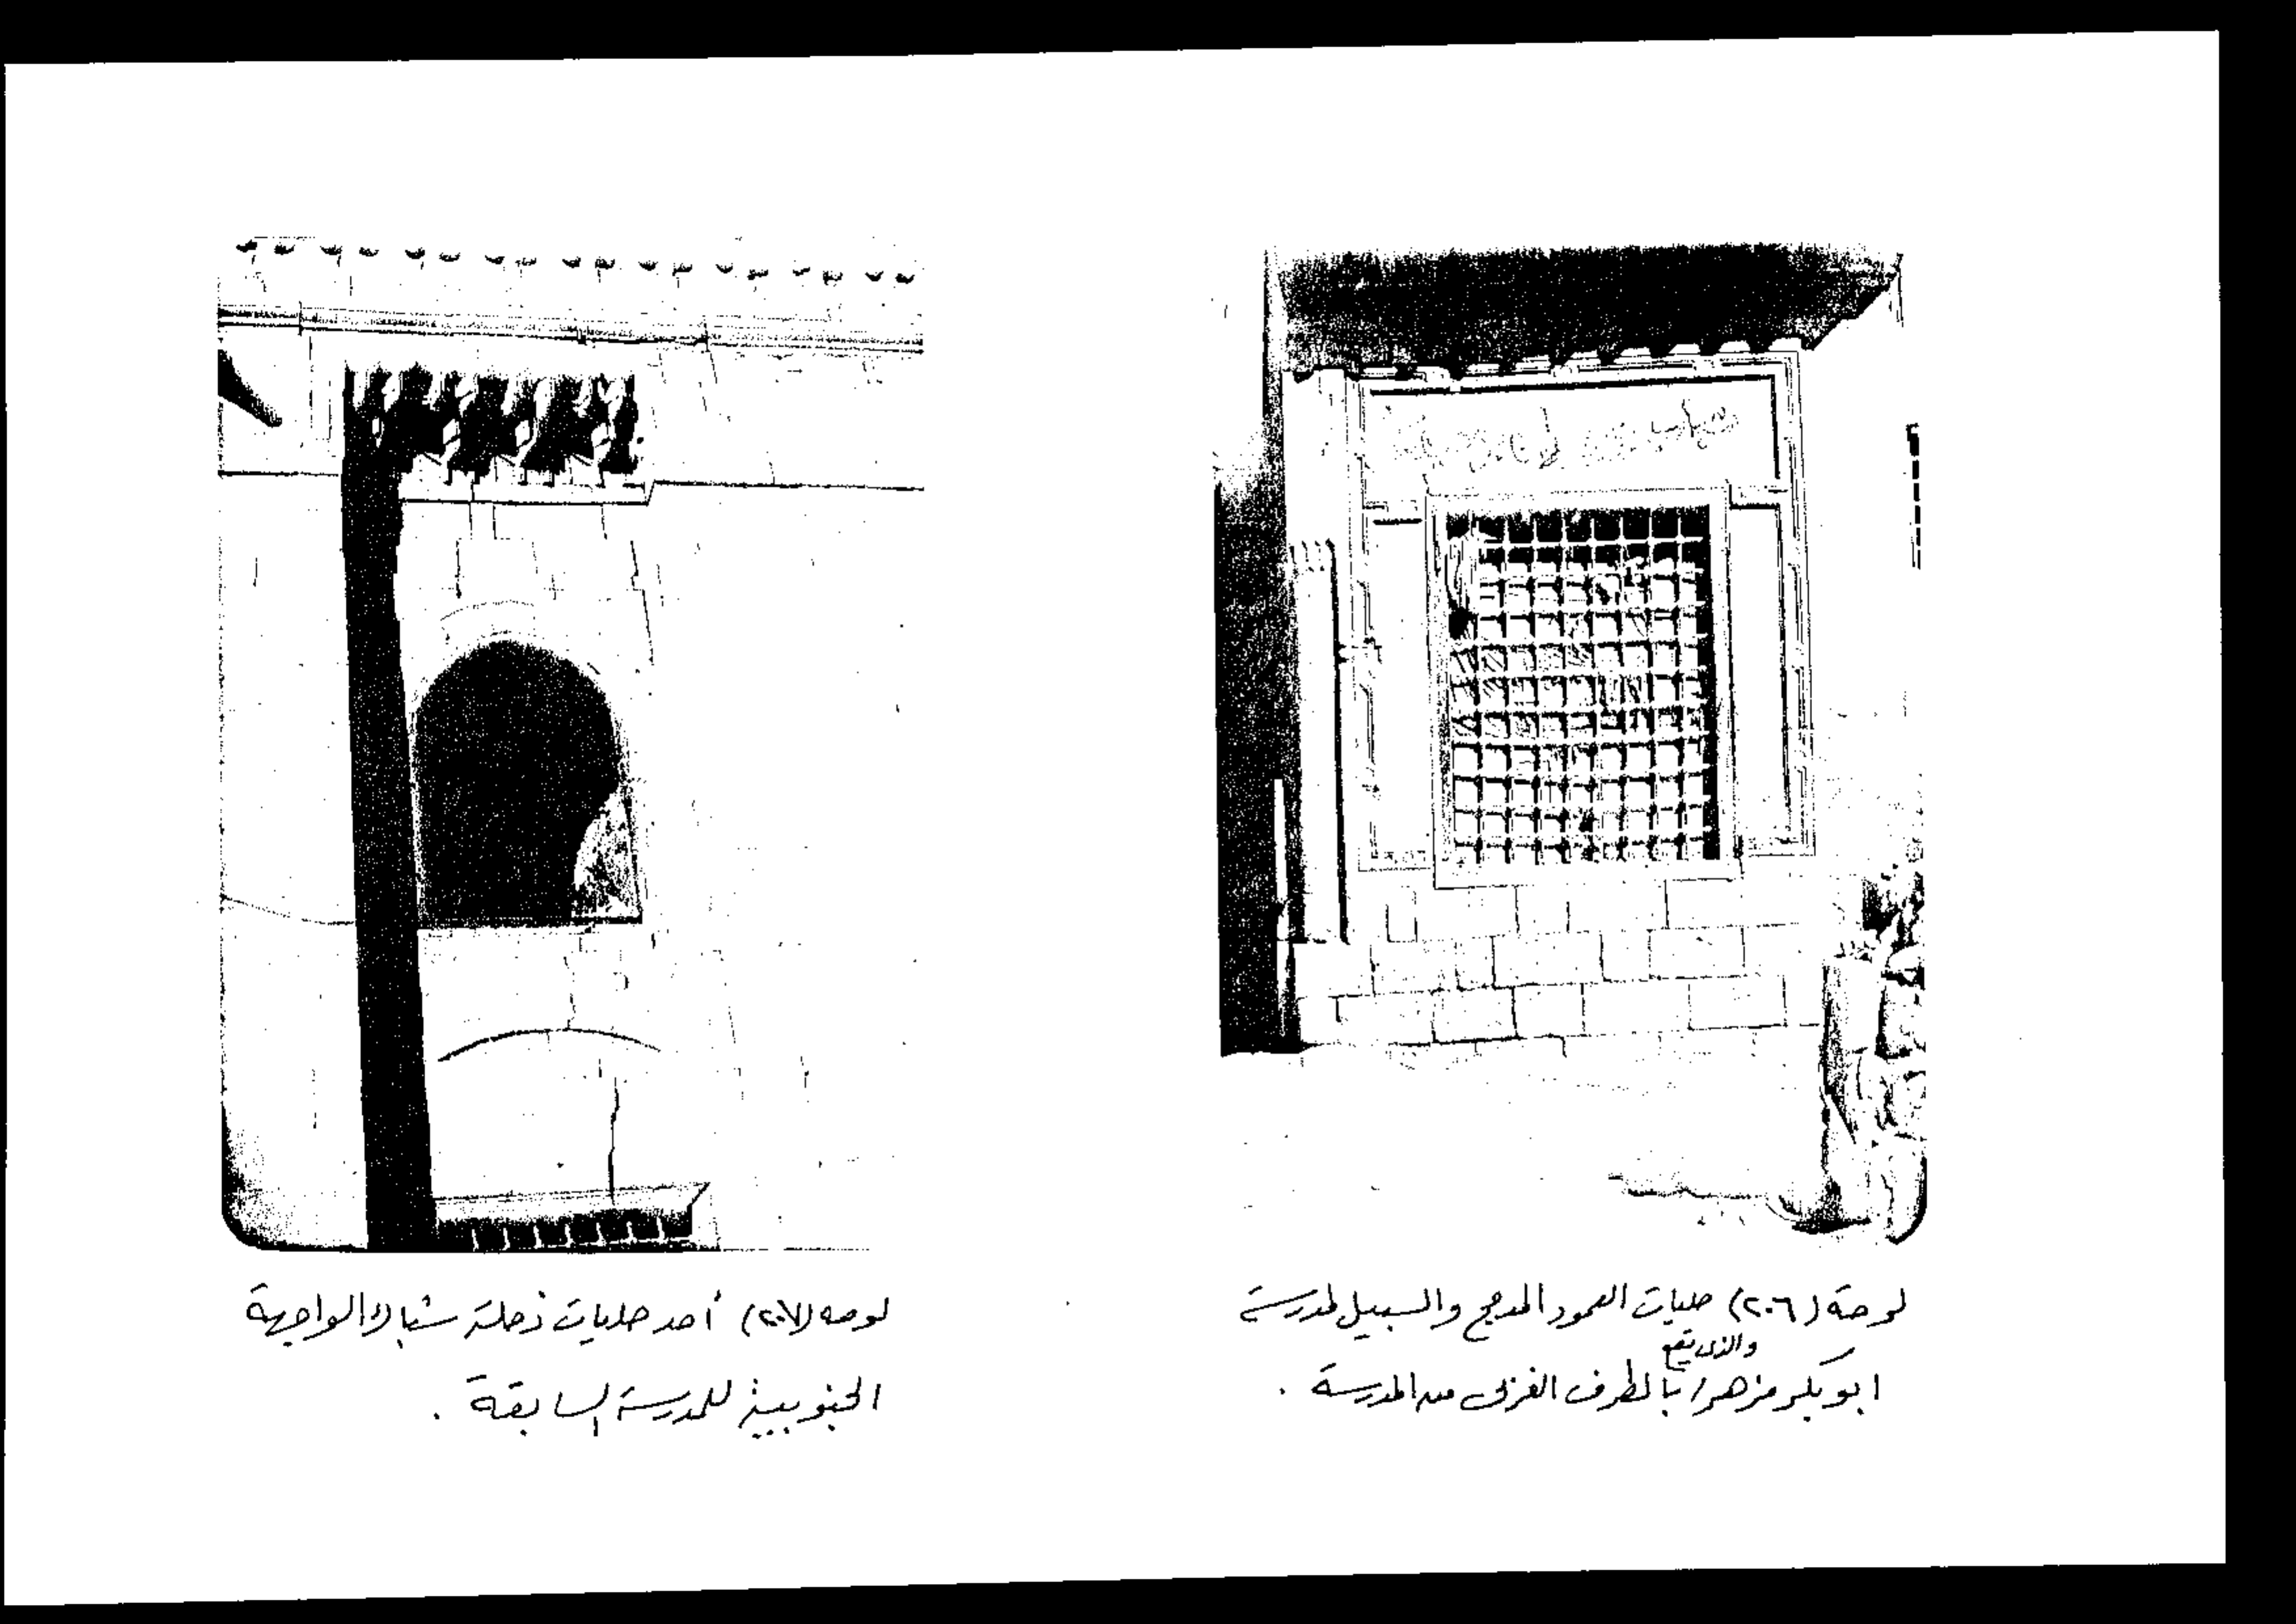 لوحة (٢٠٦) حليات العمود المدمج والسبيل لمدرسة
والذى يقع
ابو بكر مزهر بالطرف الغربى من المدرسة .
لوحه (٢٠٧) أحد حليات دخلة شباك الواجهة
الجنوبية للمدرسة السابقة .